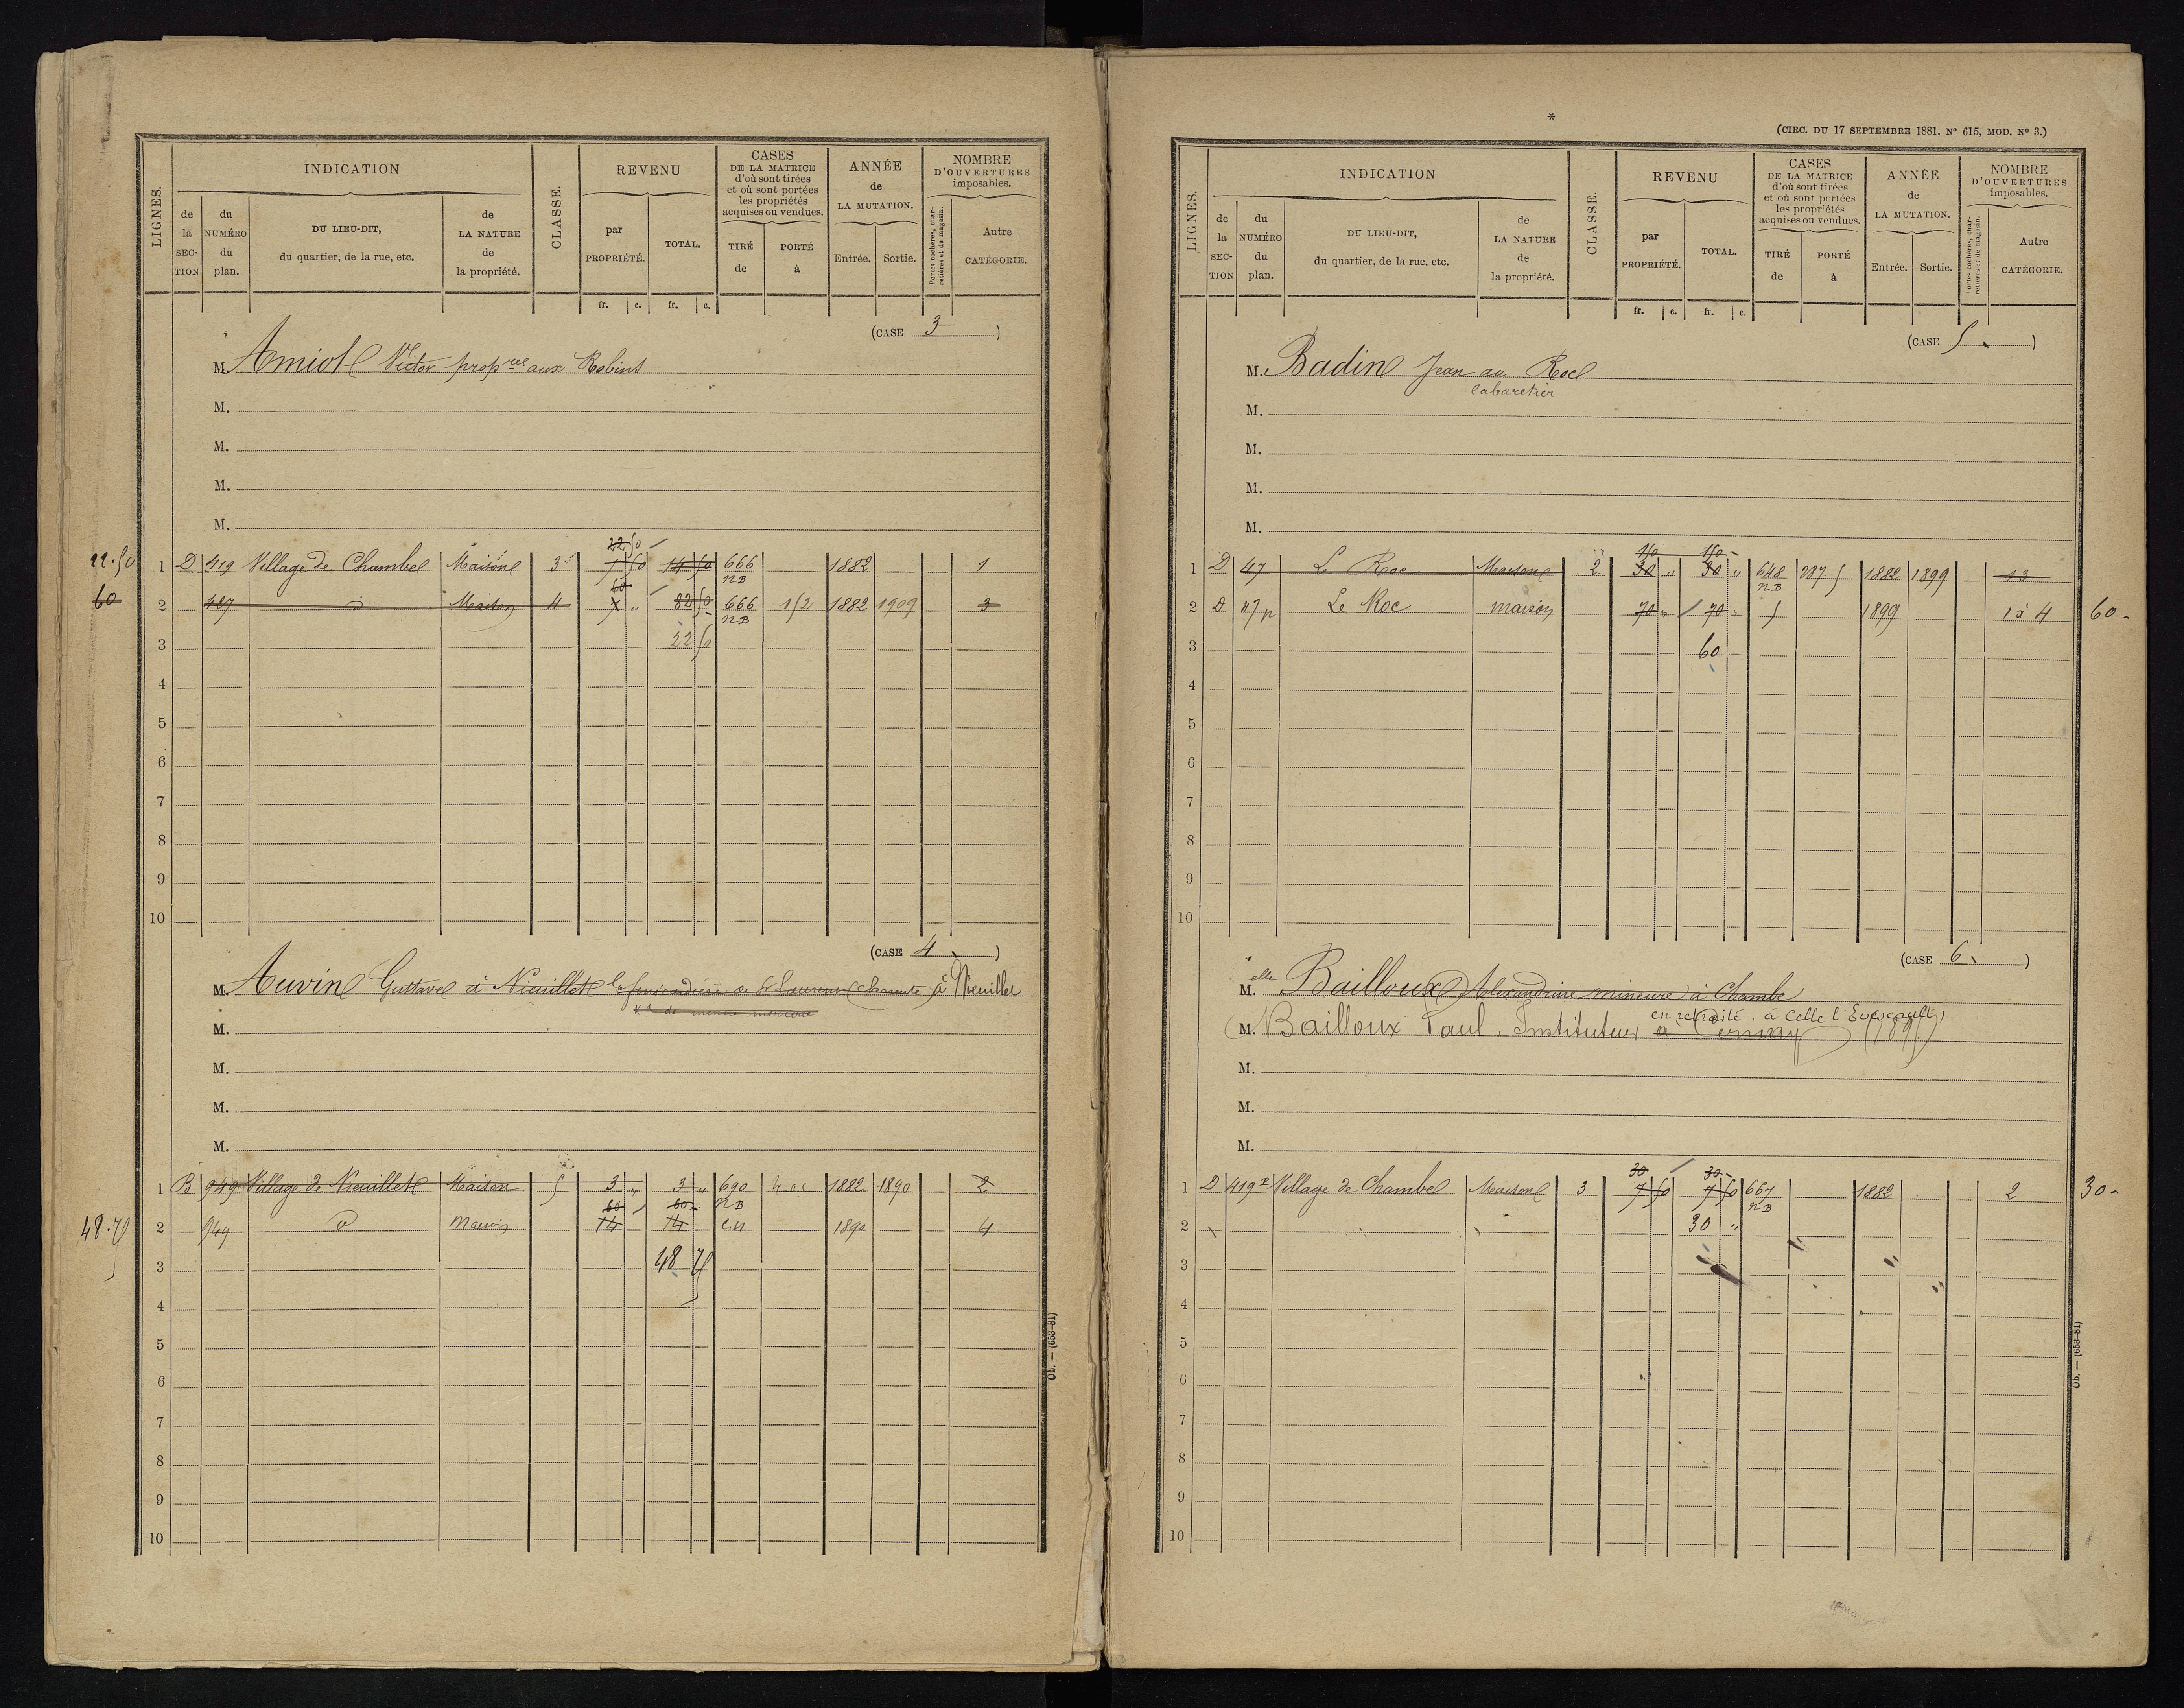 LIGNES.
INDICATION
de la SECTION
du NUMÉRO du plan.
DU LIEU-DIT, du quartier, de la rue, etc.
de LA NATURE de la propriété.
CLASSE.
REVENU
par PROPRIÉTÉ.
TOTAL.
CASES DE LA MATRICE d'où sont tirées et où sont portées les propriétés acquises ou vendues.
TIRÉ de
PORTÉ à
ANNÉE de LA MUTATION.
Entrée.
Sortie.
NOMBRE D'OUVERTURES imposables.
Portes cochères, charretières et de magasin.
Autre CATÉGORIE.
fr. c. fr. c.
(CASE 3)
M. Amiot Victor propre aux Robins
M.
M.
M.
M.
22 50
22.50 1 D 419 Village de Chambel Maison 3 7 50 14 50 666 1882 1
NB
60
60 2 427 d Maison 4 82 50 666 152 1882 1909 3
NB
3 22 50
4
5
6
7
8
9
10
(CASE 4)
M. Auvin Gustave à Nieuillet St Laurent Charente à Nieuillet
M.
M.
M.
M.
1 B 949 Village de Nieuillet Maison 5 3 " 3 " 690 1882 1890 2
60 60 NB
48.75 2 949 d Maison 14 14 1890 4
3 48 75
4
5
6
7
8
9
10
Ob. — (653-81)
*
(CIRC. DU 17 SEPTEMBRE 1881, N° 615, MOD. N° 3.)
LIGNES.
INDICATION
de la SECTION
du NUMÉRO du plan.
DU LIEU-DIT, du quartier, de la rue, etc.
de LA NATURE de la propriété.
CLASSE.
REVENU
par PROPRIÉTÉ.
TOTAL.
CASES DE LA MATRICE d'où sont tirées et où sont portées les propriétés acquises ou vendues.
TIRÉ de
PORTÉ à
ANNÉE de LA MUTATION.
Entrée.
Sortie.
NOMBRE D'OUVERTURES imposables.
Portes cochères, charretières et de magasin.
Autre CATÉGORIE.
fr. c. fr. c.
(CASE 5)
M. Badin Jean au Roc
cabaretier
M.
M.
M.
M.
150 150
1 D 47 Le Roc Maison 2 30 " 30 " 648 287 5 1882 1899 13
NB
2 D 47p Le Roc maison 70 " 70 " 5 1899 1 à 4 60
3 60
4
5
6
7
8
9
10
(CASE 6)
M. elle Bailloux Alexandrine mineure à Chambe
M. Bailloux Paul Instituteur à Cernay en retraite à Celle l'Evescault
M.
M.
M.
30 30
1 D 419 Village de Chambel Maison 3 7 50 7 50 667 1882 2 30
NB
2 30 "
3
4
5
6
7
8
9
10
Ob. — (653-81)